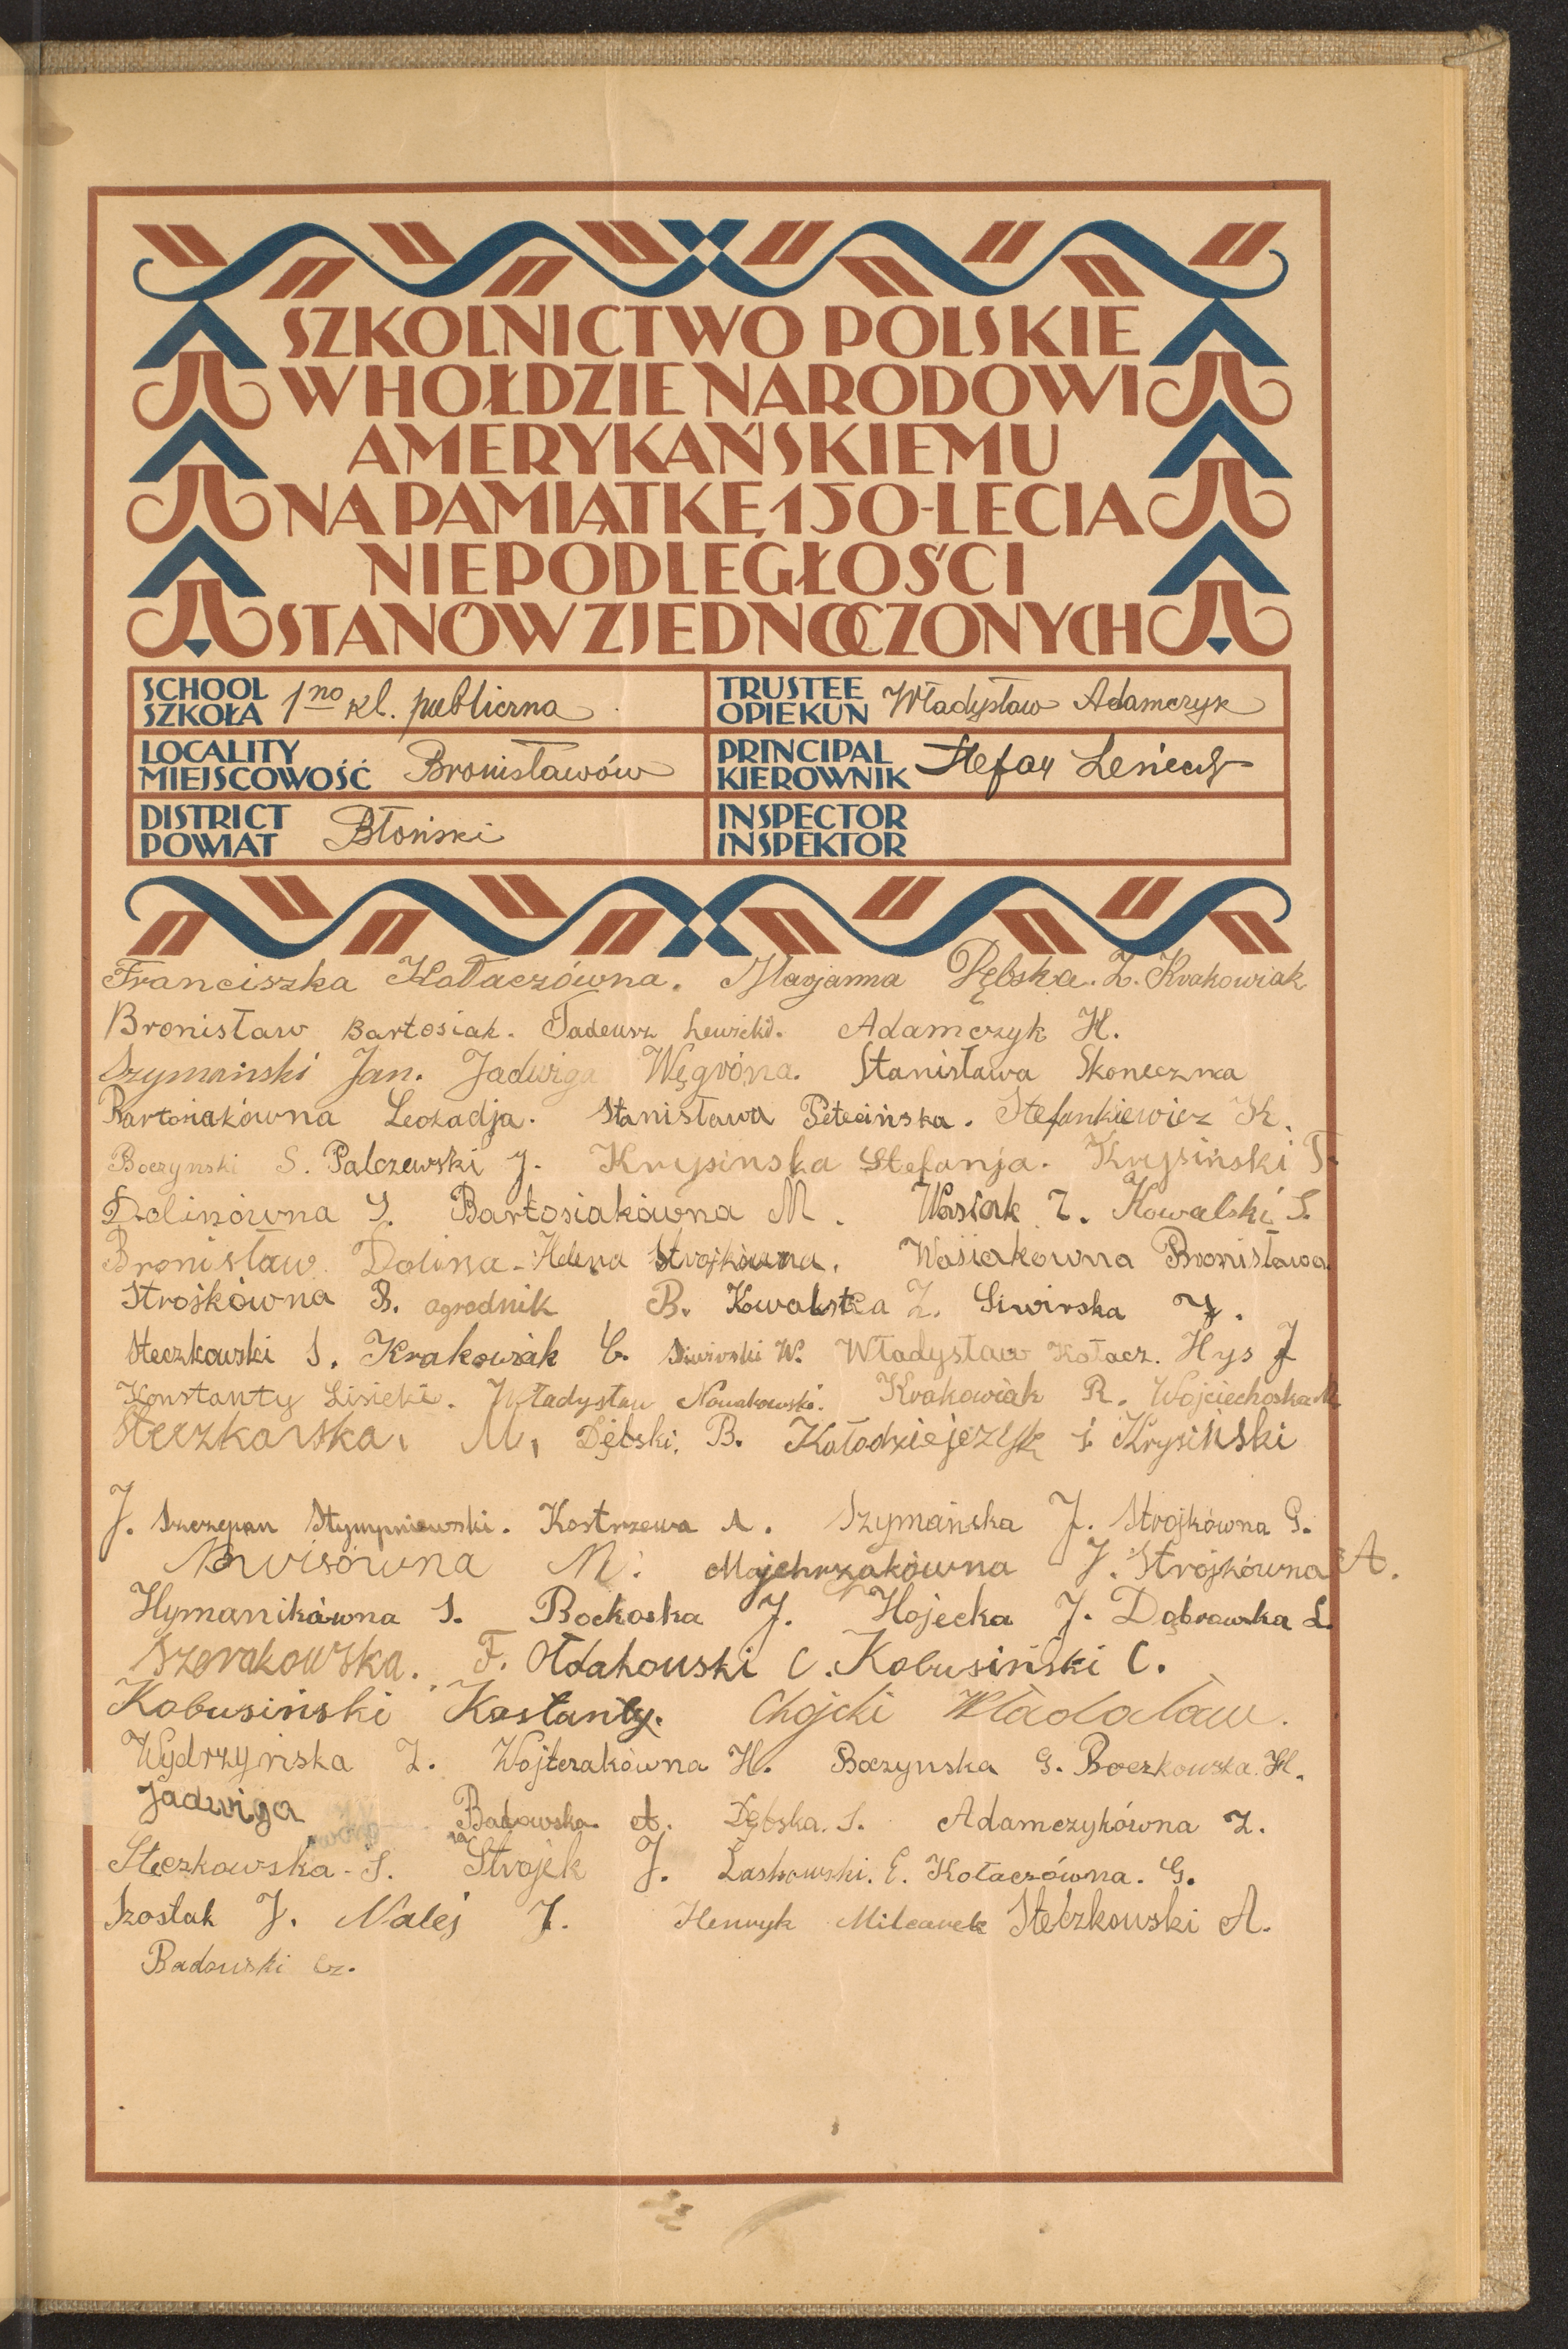 SZKOLNICTWO POLSKIE
W HOŁDZIE NARODOWI
AMERYKAŃSKIEMU
NA PAMIĄTKĘ 150-LECIA
NIEPODLEGŁOŚCI
STANÓW ZJEDNOCZONYCH
SCHOOL SZKOŁA 1no kl. publiczna
TRUSTEE OPIEKUN Władysław Adamczyk
LOCALITY MIEJSCOWOŚĆ Bronisławów
PRINCIPAL KIEROWNIK Stefan
DISTRICT POWIAT Błoński
INSPECTOR INSPEKTOR
Franciszka Kołaczówna. Marjanna Dębska. Z. Krakowiak
Bronisław Bartosiak. Tadeusz Lewicki. Adamczyk H.
Szymański Jan. Jadwiga Węgróna. Stanisława Skoneczna
Bartosiakówna Leokadja. Stanisława Petecińska. Stefankiewicz K.
Boczynski S. Palczewski J. Krysinska Stefanja. Krysiński T.
Dolinówna S. Bartosiakówna M. Wasiak Z. Kowalski S.
Bronisław Dolina - Helena Strojkówna. Wasiakowna Bronisława
Strośkówna B. Ogrodnik B. Kowalska Z. Siwirska J.
Steczkowski S. Krakowiak C. Siwirski W. Władysław Kołacz. Hys J
Konstanty Lisicki. Władysław Nowakowski. Krakowiak R. Wojciechoska M
Steczkowska, M, Dębski, B. Kołodziejczyk S Krysiński
J. Szczepan Stympniewski. Kostrzewa A. Szymańska J. Strojkówna G.
M. Majchrzakówna J. Strojkówna A.
Hymanikówna S. Bockoska J. Hojecka J. Dąbrowska L.
Szerakowska. F. Ołdakouski C. Kobusiński C.
Kobusiński Kostanty. Chojcki Władaław.
Wydrzyńska Z. Wojterakówna H. Boczynska G. Boczkowska. H.
Jadwiga Badowska A. Dębska. S. Adamczykówna Z.
Steczkowska - S. Strojek J. Laskowski. E. Kołaczówna. G.
Szostak J. Nalej J. Henryk Milcarek Steczkowski A.
Badowski Cz.